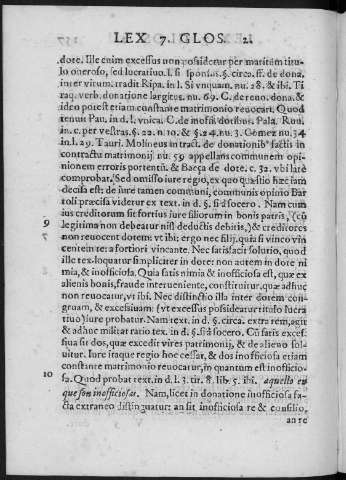 LEX 7. GLOS. 2.
dote. Ille enim excessus non possidetur per maritum titu-
lo oneroso, sed lucratiuo. l. si sponsus. §. circa. ff. de dona.
inter virum. tradit Ripa. in l. Si vnquam. nu. 28. & ibi. Ti
raq. verb. donatione largitus. nu. 69. G. de reno. dona. &
ideo potest etiam constante matrimonio reuocari. Quod
tenuit Pau. in d. l. vnica. C. de inofi. dotibus. Pala. Ruui.
in. c. per vestras. §. 22. n. 10. & §. 24. nu. 3. Gomez nu. 34
in l. 29. Tauri. Molineus in tract. de donationib. factis in
contractu matrimonij. nu. 59 appellans communem opi-
nionem erroris portentũ. & Baeça de dote. c. 32. vbi late
comprobat. Sed omisso iure regio, ex quo quæstio hæc iam
decisa est: de iure tamen communi, communis opinio Bar
toli præcisa videtur ex text. in d. §. si à socero. Nam cum
9 ius creditorum sit fortius iure filiorum in bonis patris, (cũ
legitima non debeatur nisi deductis debitis,) & creditores
non reuocent dotem: vt ibi: ergo nec filij. quia si vinco vin
centem te: à fortiori vincante. Nec satisfacit solutio, quod
ille tex. loquatur simpliciter in dote: non autem in dote ni
mia, & inofficiosa. Quia satis nimia & inofficiosa est, quæ ex
alienis bonis, fraude interueniente, constituitur, quæ adhuc
non reuocatur, vt ibi. Nec distinctio illa inter dotem con-
gruam, & excessiuam: (vt excessus possideatur titulo lucra
tiuo) iure probatur. Nam text. in d. §. circa. extra rem, agit
& adhuc militat ratio tex. in d. §. si à socero. Cũ satis exces-
siua sit dos, quæ excedit vires patrimonij, & de alieno sol-
uitur. Iure itaque regio hoc cessat, & dos inofficiosa etiam
constante matrimonio reuocatur, in quantum est inofficio-
10 sa. Quod probat text. in d. l. 3. tit. 8. lib. 5. ibi. aquello en
que son inofficiosas. Nam, licet in donatione inofficiosa fa-
cta extraneo distinguatur: an sit inofficiosa re & consilio,
an re